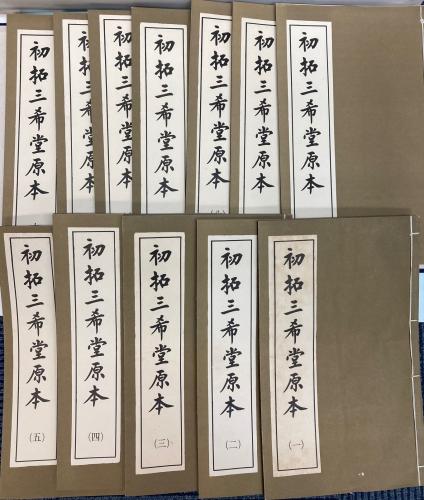 初拓三希堂原本
初拓三希堂原本
初拓三希堂原本
初拓三希堂原本
初拓三希堂原本
初拓三希堂原本
初拓三希堂原本
初拓三希堂原本(一)
初拓三希堂原本(二)
初拓三希堂原本(三)
初拓三希堂原本(四)
初拓三希堂原本(五)